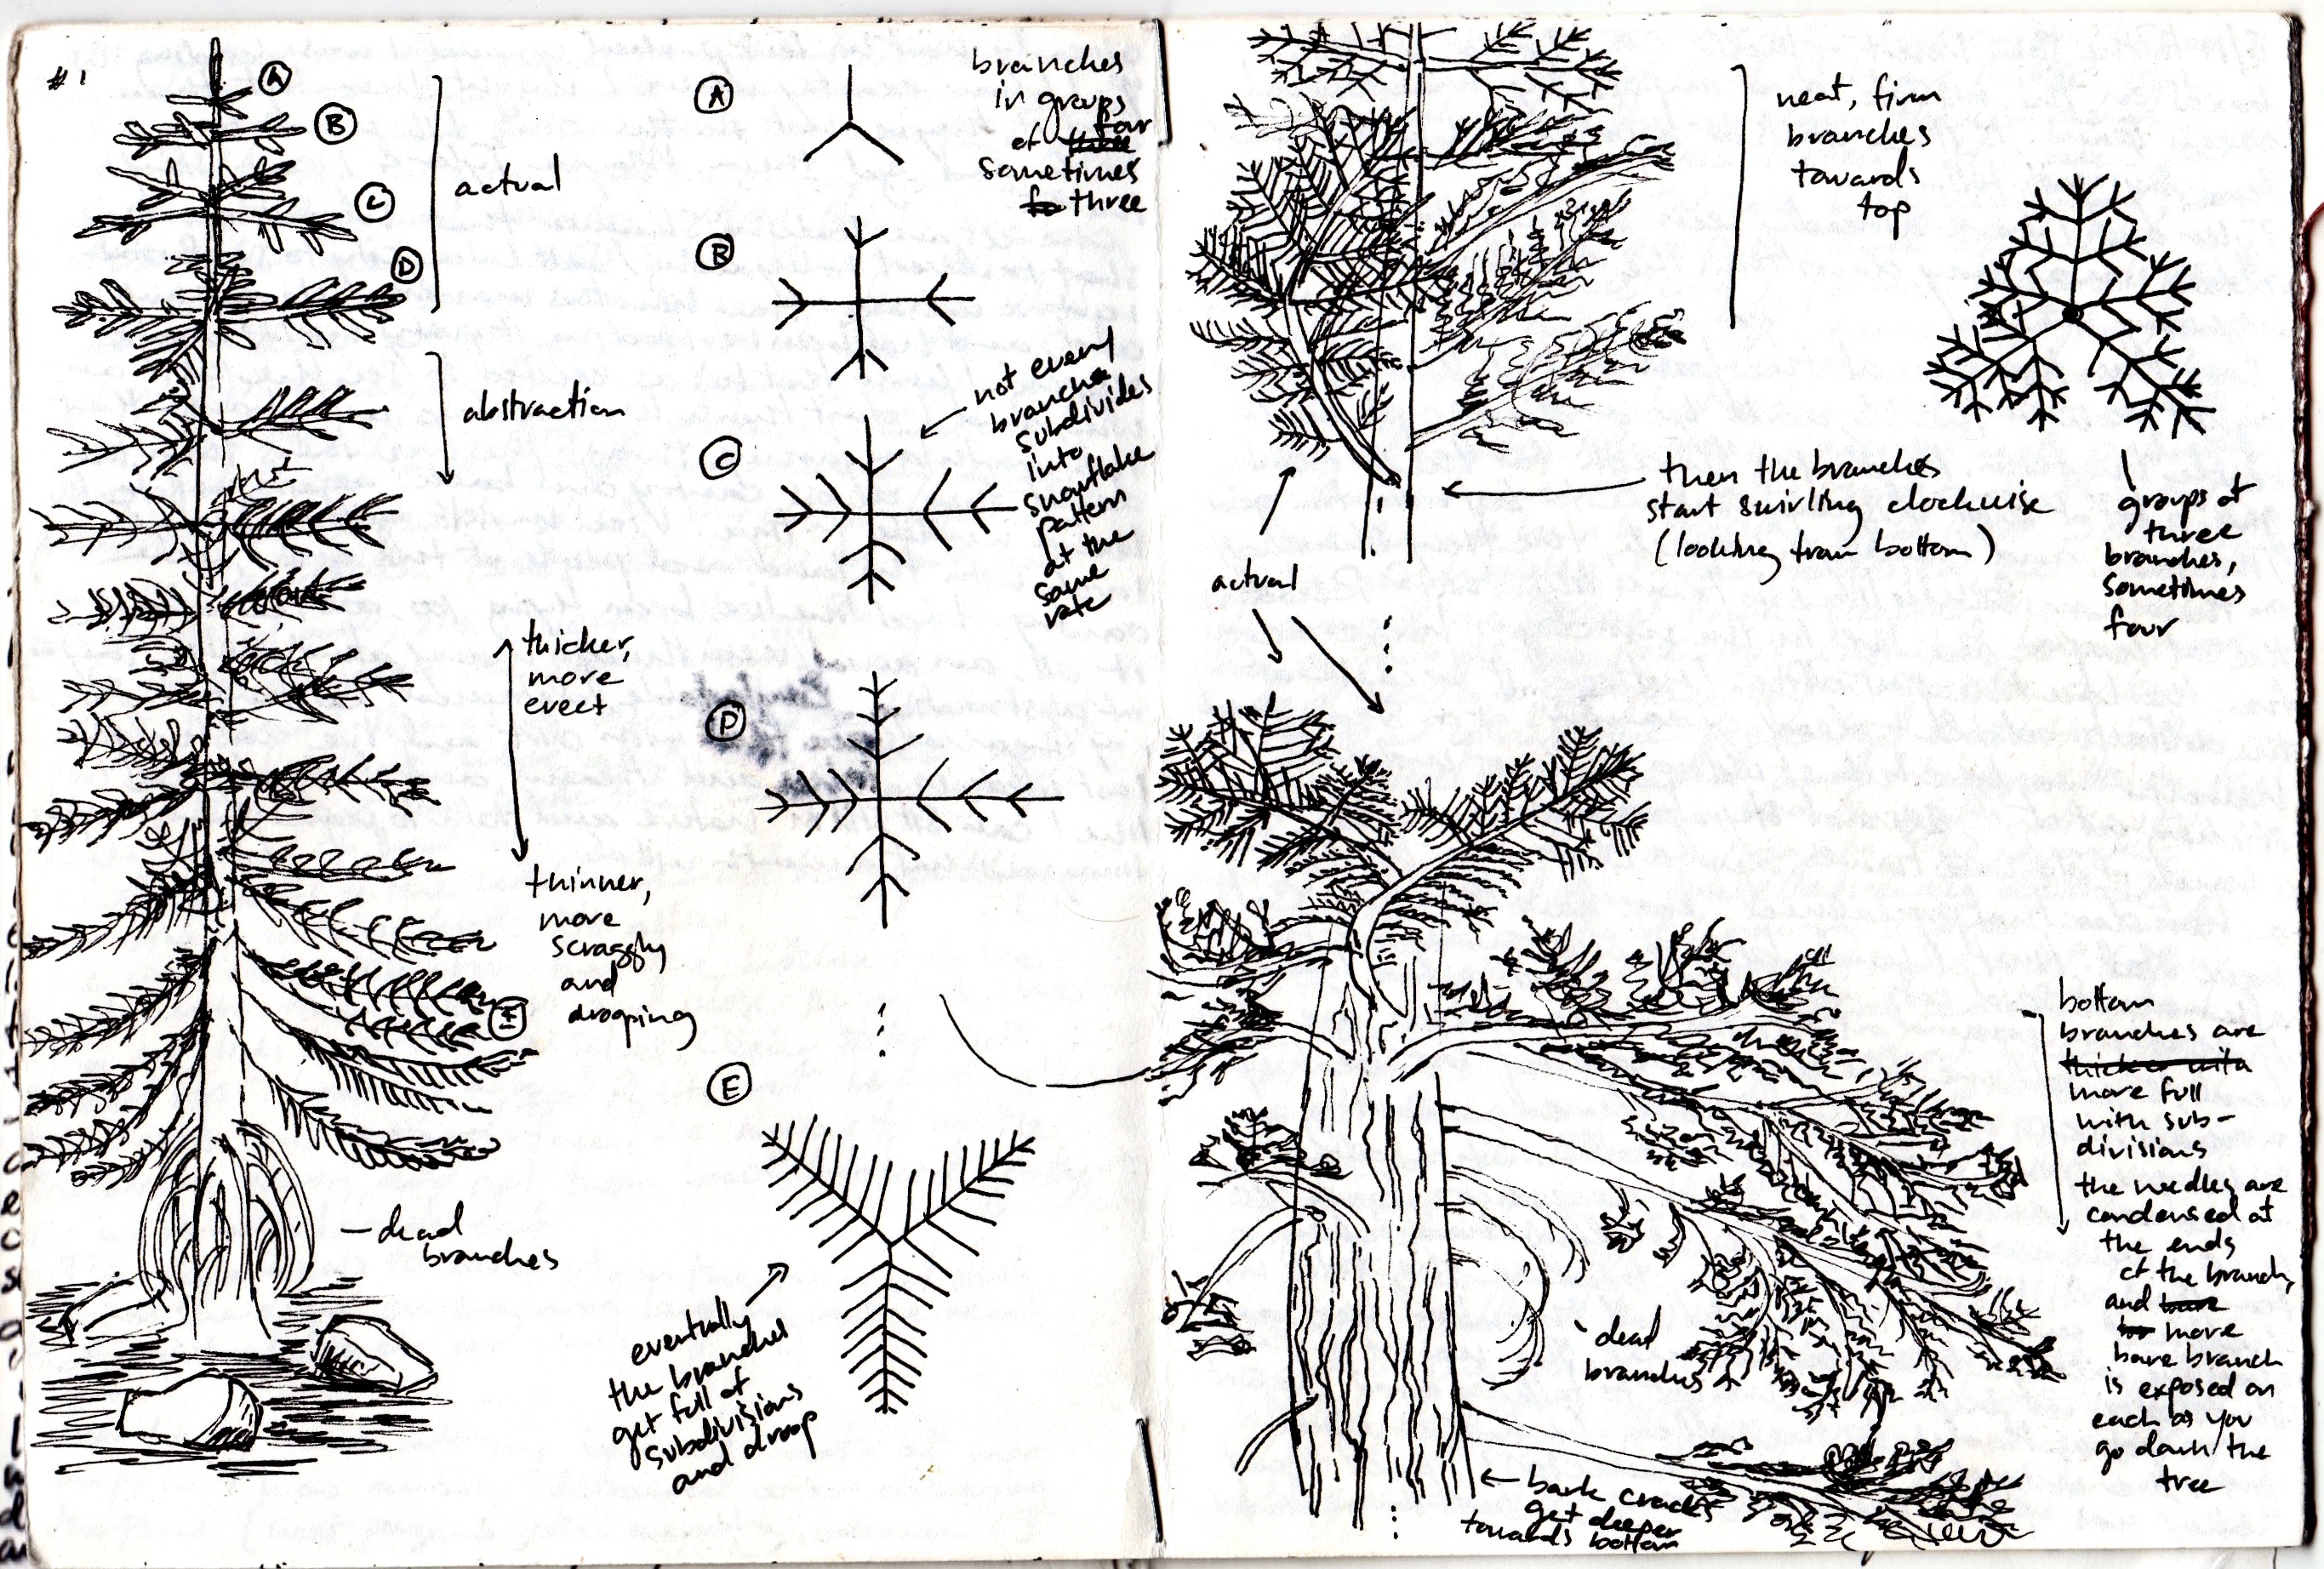 #1
A
B
C
D
E
actual
abstraction
thicker,
more
erect
thinner,
more
scraggly
and
drooping
dead
branches
A
branches
in groups
of three four
sometimes
fo three
B
C
not every
branch
subdivides
into
snowflake
pattern
at the
same
rate
D
E
eventually
the branches
get full of
subdivisions
and droop
neat, firm
branches
towards
top
then the branches
start swirling clockwise
(looking from bottom)
actual
groups of
three
branches,
sometimes
four
bottom
branches are
thicker with
more full
with sub-
divisions
the needles are
condensed at
the ends
of the branch,
and bare
more
bare branch
is exposed on
each as you
go down the
tree
dead
branches
bark cracks
get deeper
towards bottom